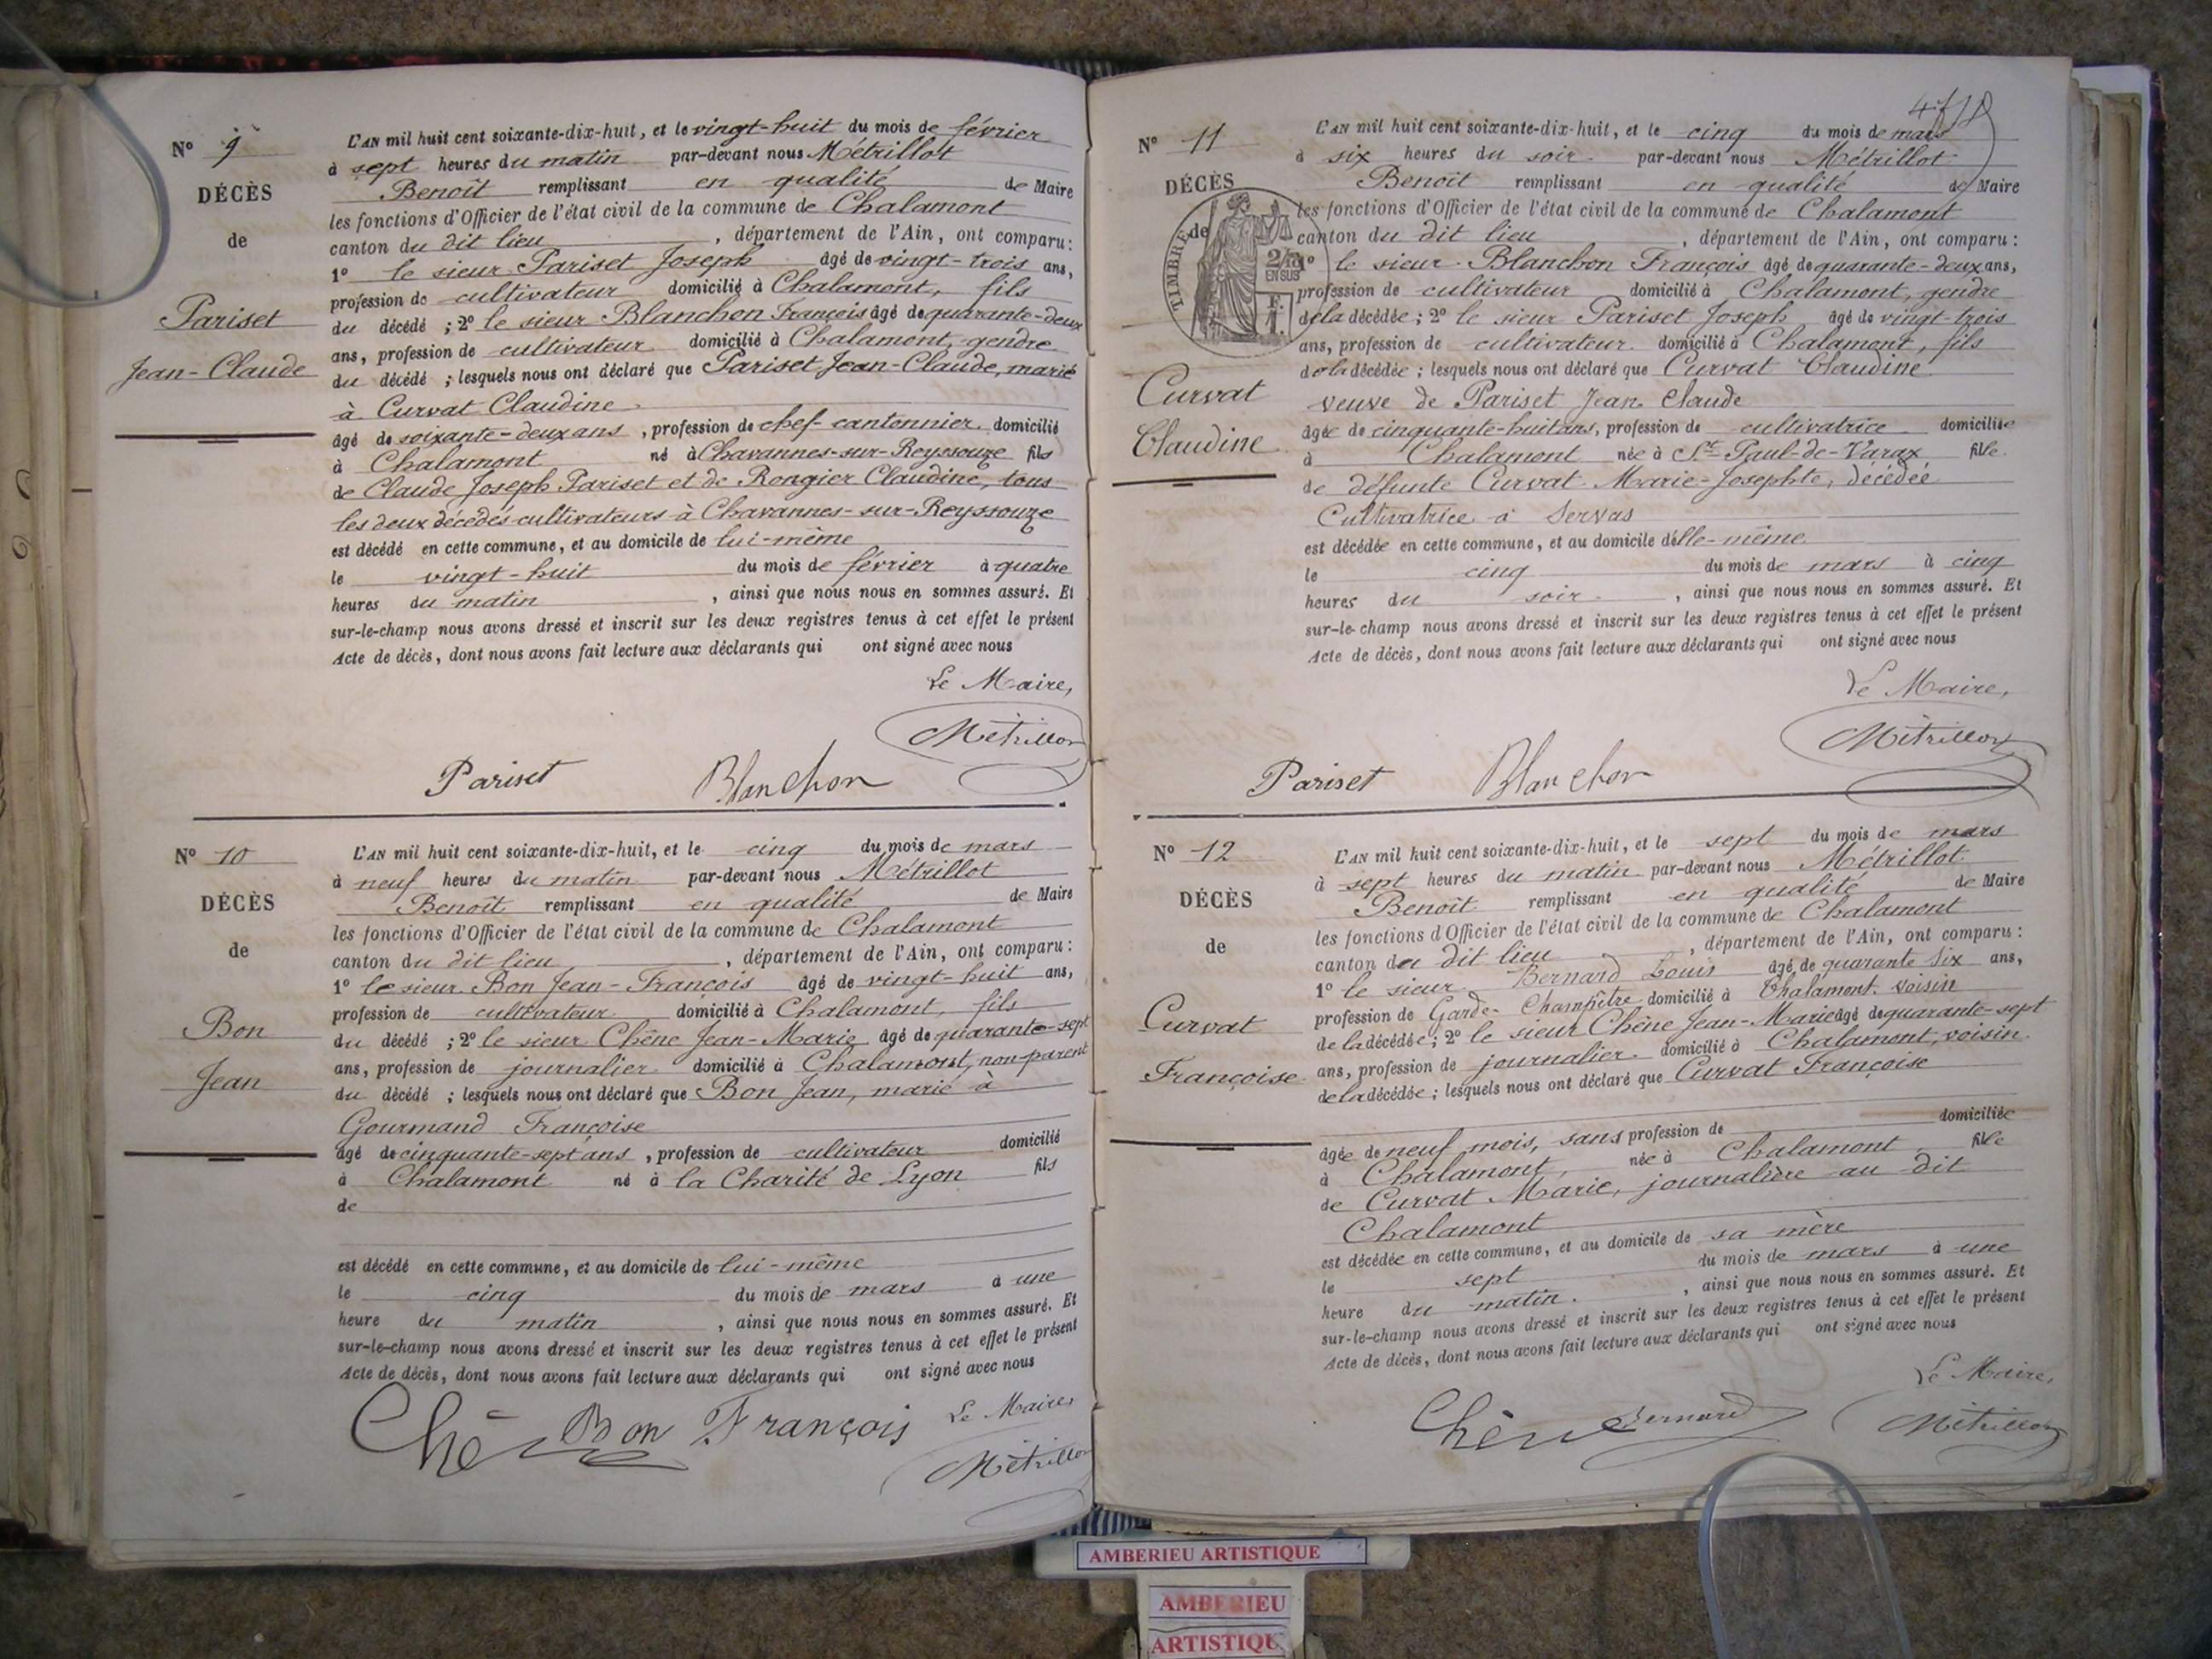 N° 9
DÉCÈS
de
Pariset
Jean-Claude
L'AN mil huit cent soixante-dix-huit, et le vingt-huit du mois de février
à sept heures du matin par-devant nous Métrillot
Benoît remplissant en qualité de Maire
les fonctions d'Officier de l'état civil de la commune de Chalamont
canton du dit lieu , département de l'Ain, ont comparu :
1° le sieur Pariset Joseph âgé de vingt-trois ans,
profession de cultivateur domicilié à Chalamont, fils
du décédé ; 2° le sieur Blanchon François âgé de quarante-deux
ans, profession de cultivateur domicilié à Chalamont, gendre
du décédé ; lesquels nous ont déclaré que Pariset Jean-Claude, marié
à Curvat Claudine
âgé de soixante-deux ans , profession de chef-cantonnier domicilié
à Chalamont né à Chavannes-sur-Reyssouze fils
de Claude Joseph Pariset et de Rongier Claudine, tous
les deux décédés cultivateurs à Chavannes-sur-Reyssouze
est décédé en cette commune, et au domicile de lui-même
le vingt-huit du mois de février à quatre
heures du matin , ainsi que nous nous en sommes assuré. Et
sur-le-champ nous avons dressé et inscrit sur les deux registres tenus à cet effet le présent
Acte de décès, dont nous avons fait lecture aux déclarants qui ont signé avec nous
Le Maire,
Métrillot
Pariset Blanchon
N° 10
DÉCÈS
de
Bon
Jean
L'AN mil huit cent soixante-dix-huit, et le cinq du mois de mars
à neuf heures du matin par-devant nous Métrillot
Benoît remplissant en qualité de Maire
les fonctions d'Officier de l'état civil de la commune de Chalamont
canton du dit lieu , département de l'Ain, ont comparu :
1° le sieur Bon Jean-François âgé de vingt-huit ans,
profession de cultivateur domicilié à Chalamont, fils
du décédé ; 2° le sieur Chêne Jean-Marie âgé de quarante-sept
ans, profession de journalier domicilié à Chalamont, non-parent
du décédé ; lesquels nous ont déclaré que Bon Jean, marié à
Gourmand Françoise
âgé de cinquante-sept ans , profession de cultivateur domicilié
à Chalamont né à la Charité de Lyon fils
de
est décédé en cette commune, et au domicile de lui-même
le cinq du mois de mars à une
heure du matin , ainsi que nous nous en sommes assuré. Et
sur-le-champ nous avons dressé et inscrit sur les deux registres tenus à cet effet le présent
Acte de décès, dont nous avons fait lecture aux déclarants qui ont signé avec nous
Le Maire,
Chêne Bon François
Métrillot
N° 11
DÉCÈS
de
TIMBRE
2/10
EN SUS
Curvat
Claudine
L'AN mil huit cent soixante-dix-huit, et le cinq du mois de mars
à six heures du soir par-devant nous Métrillot
Benoît remplissant en qualité de Maire
les fonctions d'Officier de l'état civil de la commune de Chalamont
canton du dit lieu , département de l'Ain, ont comparu :
1° le sieur Blanchon François âgé de quarante-deux ans,
profession de cultivateur domicilié à Chalamont, gendre
de la décédée ; 2° le sieur Pariset Joseph âgé de vingt-trois
ans, profession de cultivateur domicilié à Chalamont, fils
de la décédée ; lesquels nous ont déclaré que Curvat Claudine
veuve de Pariset Jean Claude
âgée de cinquante-huit ans, profession de cultivatrice domiciliée
à Chalamont née à St-Paul-de-Varax fille
de défunte Curvat Marie-Josephte, décédée
Cultivatrice à Servas
est décédée en cette commune, et au domicile d'elle-même
le cinq du mois de mars à cinq
heures du soir , ainsi que nous nous en sommes assuré. Et
sur-le-champ nous avons dressé et inscrit sur les deux registres tenus à cet effet le présent
Acte de décès, dont nous avons fait lecture aux déclarants qui ont signé avec nous
Le Maire,
Métrillot
Pariset Blanchon
N° 12
DÉCÈS
de
Curvat
Françoise
L'AN mil huit cent soixante-dix-huit, et le sept du mois de mars
à sept heures du matin par-devant nous Métrillot
Benoît remplissant en qualité de Maire
les fonctions d'Officier de l'état civil de la commune de Chalamont
canton du dit lieu , département de l'Ain, ont comparu :
1° le sieur Bernard Louis âgé de quarante six ans,
profession de Garde-Champêtre domicilié à Chalamont voisin
de la décédée ; 2° le sieur Chêne Jean-Marie âgé de quarante-sept
ans, profession de journalier domicilié à Chalamont, voisin
de la décédée ; lesquels nous ont déclaré que Curvat Françoise
âgée de neuf mois, sans profession de domiciliée
à Chalamont, née à Chalamont fille
de Curvat Marie, journalière au dit
Chalamont
est décédée en cette commune, et au domicile de sa mère
le sept du mois de mars à une
heure du matin , ainsi que nous nous en sommes assuré. Et
sur-le-champ nous avons dressé et inscrit sur les deux registres tenus à cet effet le présent
Acte de décès, dont nous avons fait lecture aux déclarants qui ont signé avec nous
Le Maire,
Chêne Bernard Métrillot
AMBERIEU ARTISTIQUE
AMBERIEU
ARTISTIQU